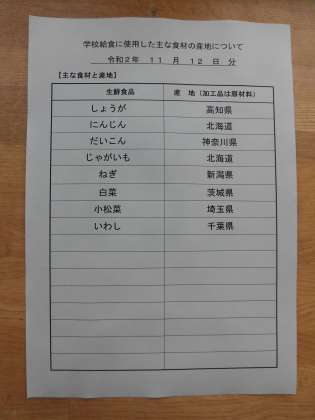 学校給食に使用した主な食材の産地について
令和2年 11 月 12 日 分
【主な食材と産地】
生鮮食品 産 地（加工品は原材料）
しょうが 高知県
にんじん 北海道
だいこん 神奈川県
じゃがいも 北海道
ねぎ 新潟県
白菜 茨城県
小松菜 埼玉県
いわし 千葉県